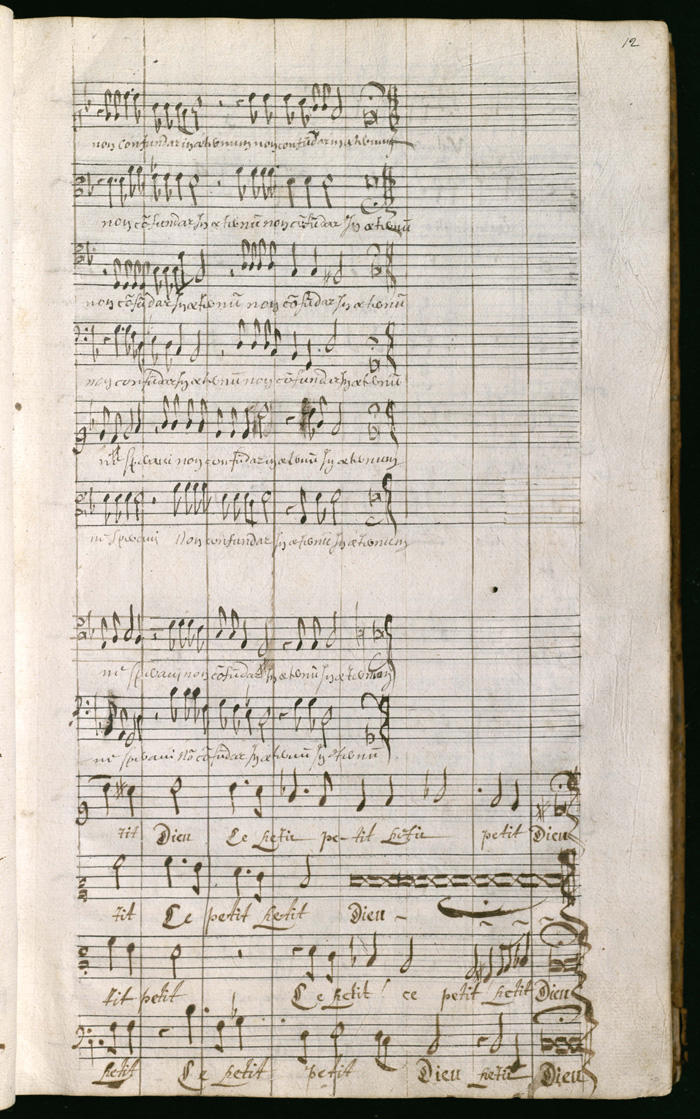 12
non confundar in æternum non confūdar in æternum
non cōfundar In æternū non cōfūdar In æternū
non cōfūdar In æternū non cōfūdar In æternū
non confūdar In æternū non cōfundar In æternū
speravi non confūdar in æternū In æternum
speravi Non confundar In æternū In æternum
speravi non cōfūdar In æternū In æternum
speravi Nō cōfūdar In æternū In æternū
tit Dieu Ce petit pe-tit petit petit Dieu
tit Ce petit petit Dieu
tit petit Ce petit ce petit petit Dieu
petit Ce petit petit Dieu petit Dieu